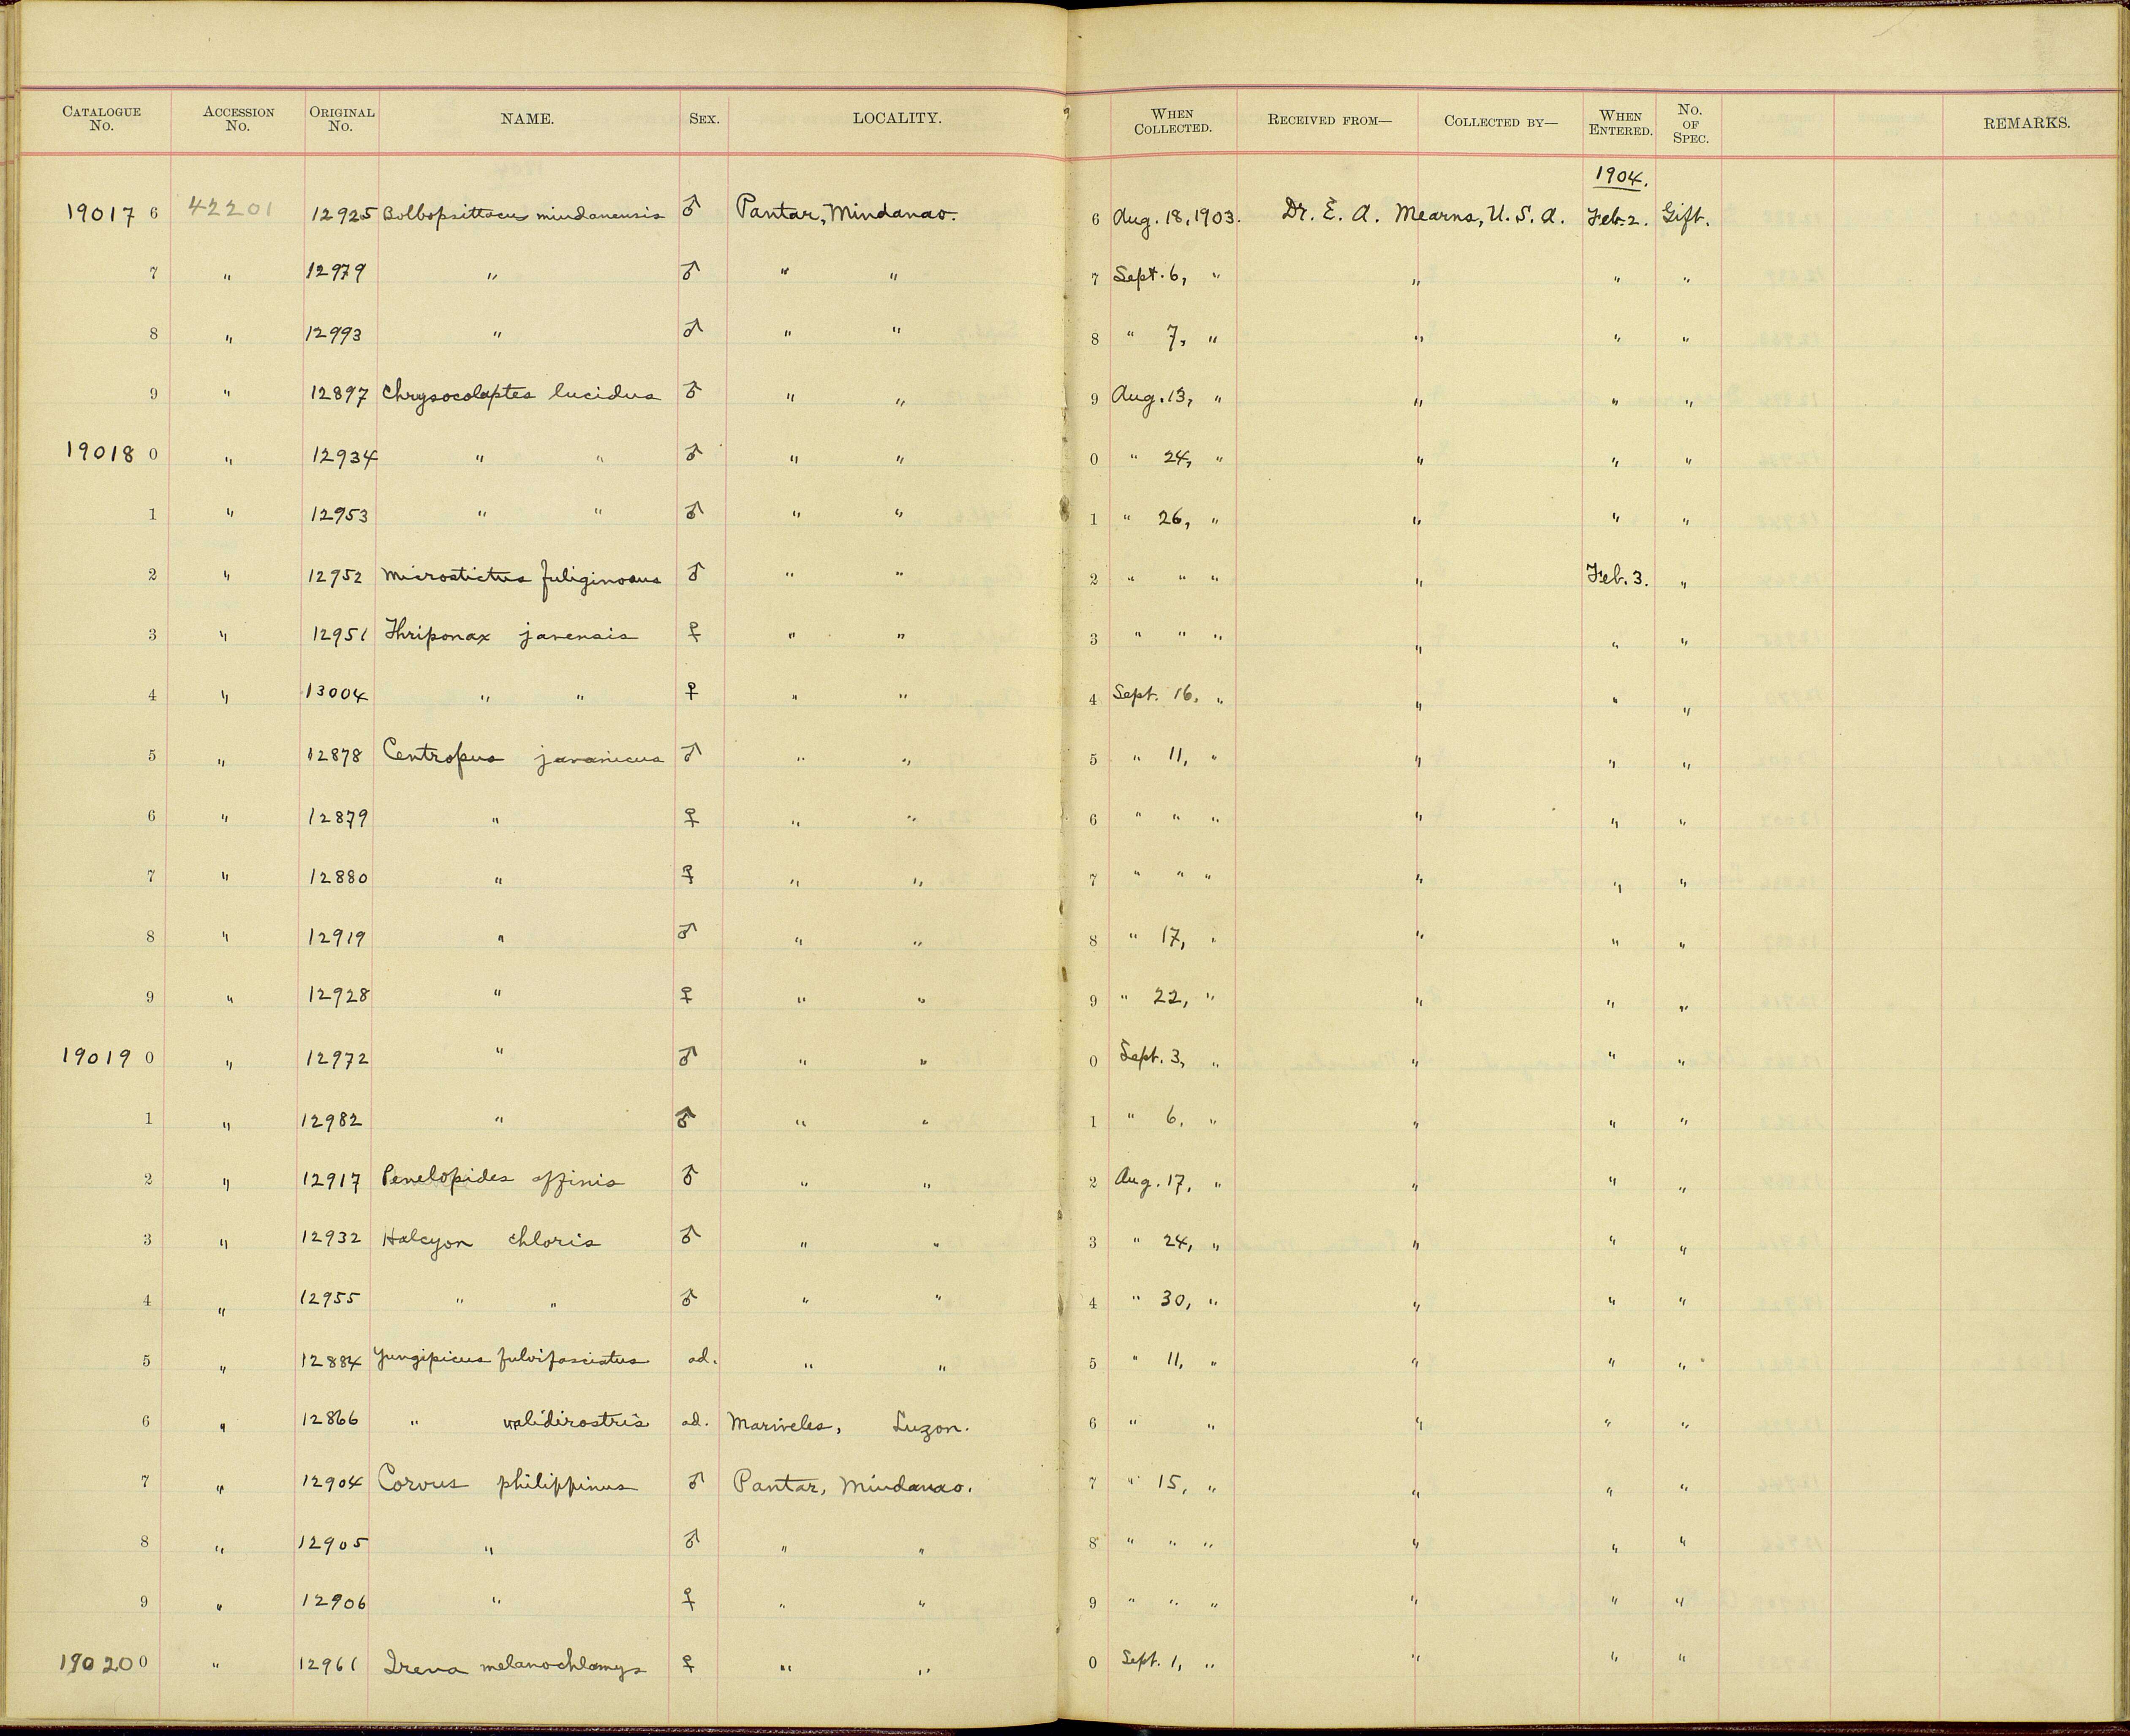 CATALOGUE No. ACCESSION No. ORIGINAL No. NAME. SEX. LOCALITY. WHEN COLLECTED. RECEIVED FROM— COLLECTED BY— WHEN ENTERED. No. OF SPEC. REMARKS.
1904.
19017 6 42201 12925 Bolbopsittacus mindanensis ♂ Pantar, Mindanao. 6 Aug. 18, 1903. Dr. E. A. Mearns, U. S. A. Feb. 2. Gift.
7 " 12979 " ♂ " " 7 Sept. 6, " " " "
8 " 12993 " ♂ " " 8 " 7, " " " "
9 " 12897 Chrysocolaptes lucidus ♂ " " 9 Aug. 13, " " " "
19018 0 " 12934 " " ♂ " " 0 " 24, " " " "
1 " 12953 " " ♂ " " 1 " 26, " " " "
2 " 12952 Microstictus fuliginosus ♂ " " 2 " " " " Feb. 3. "
3 " 12951 Thriponax javensis ♀ " " 3 " " " " " "
4 " 13004 " " ♀ " " 4 Sept. 16, " " " "
5 " 12878 Centropus javanicus ♂ " " 5 " 11, " " " "
6 " 12879 " ♀ " " 6 " " " " " "
7 " 12880 " ♀ " " 7 " " " " " "
8 " 12919 " ♂ " " 8 " 17, " " " "
9 " 12928 " ♀ " " 9 " 22, " " " "
19019 0 " 12972 " ♂ " " 0 Sept. 3, " " " "
1 " 12982 " ♂ " " 1 " 6, " " " "
2 " 12917 Penelopides affinis ♂ " " 2 Aug. 17, " " " "
3 " 12932 Halcyon chloris ♂ " " 3 " 24, " " " "
4 " 12955 " " ♂ " " 4 " 30, " " " "
5 " 12884 Yungipicus fulvifasciatus ad. " " 5 " 11, " " " "
6 " 12866 " validirostris ad. Mariveles, Luzon. 6 " " " " "
7 " 12904 Corvus philippinus ♂ Pantar, Mindanao. 7 " 15, " " " "
8 " 12905 " ♂ " " 8 " " " " " "
9 " 12906 " ♀ " " 9 " " " " " "
19020 0 " 12961 Irena melanochlamys ♀ " " 0 Sept. 1, " " " "